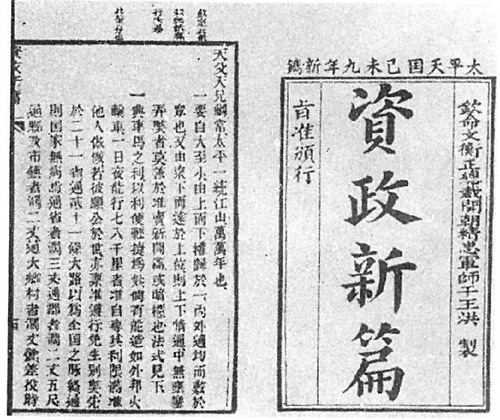 太平天囯己未九年新鐫
欽命文衡正總裁開朝精忠軍師干王洪 製
資政新篇
旨准頒行
天父天兄綱常太平一統江山萬萬年也
一要自大至小由上而下權歸於一內外適均而敷於
眾也又由眾下而達於上位則上下情通中無壅塞
弄弊者莫善於准賣新聞篇或暗櫃也法式見下
一興車馬之利以利便輕捷為妙倘有能造如外邦火
輪車一日夜能行七八千里者准自專其利限滿准
他人倣做若彼願公於世亦稟准遵行免生別弊先
於二十一省通二十一條大路以為全国之脉絡通
則国家無病焉通省者濶三丈通郡者濶二丈五尺
通縣及市鎮者濶二丈通大鄉村者濶丈餘差役時